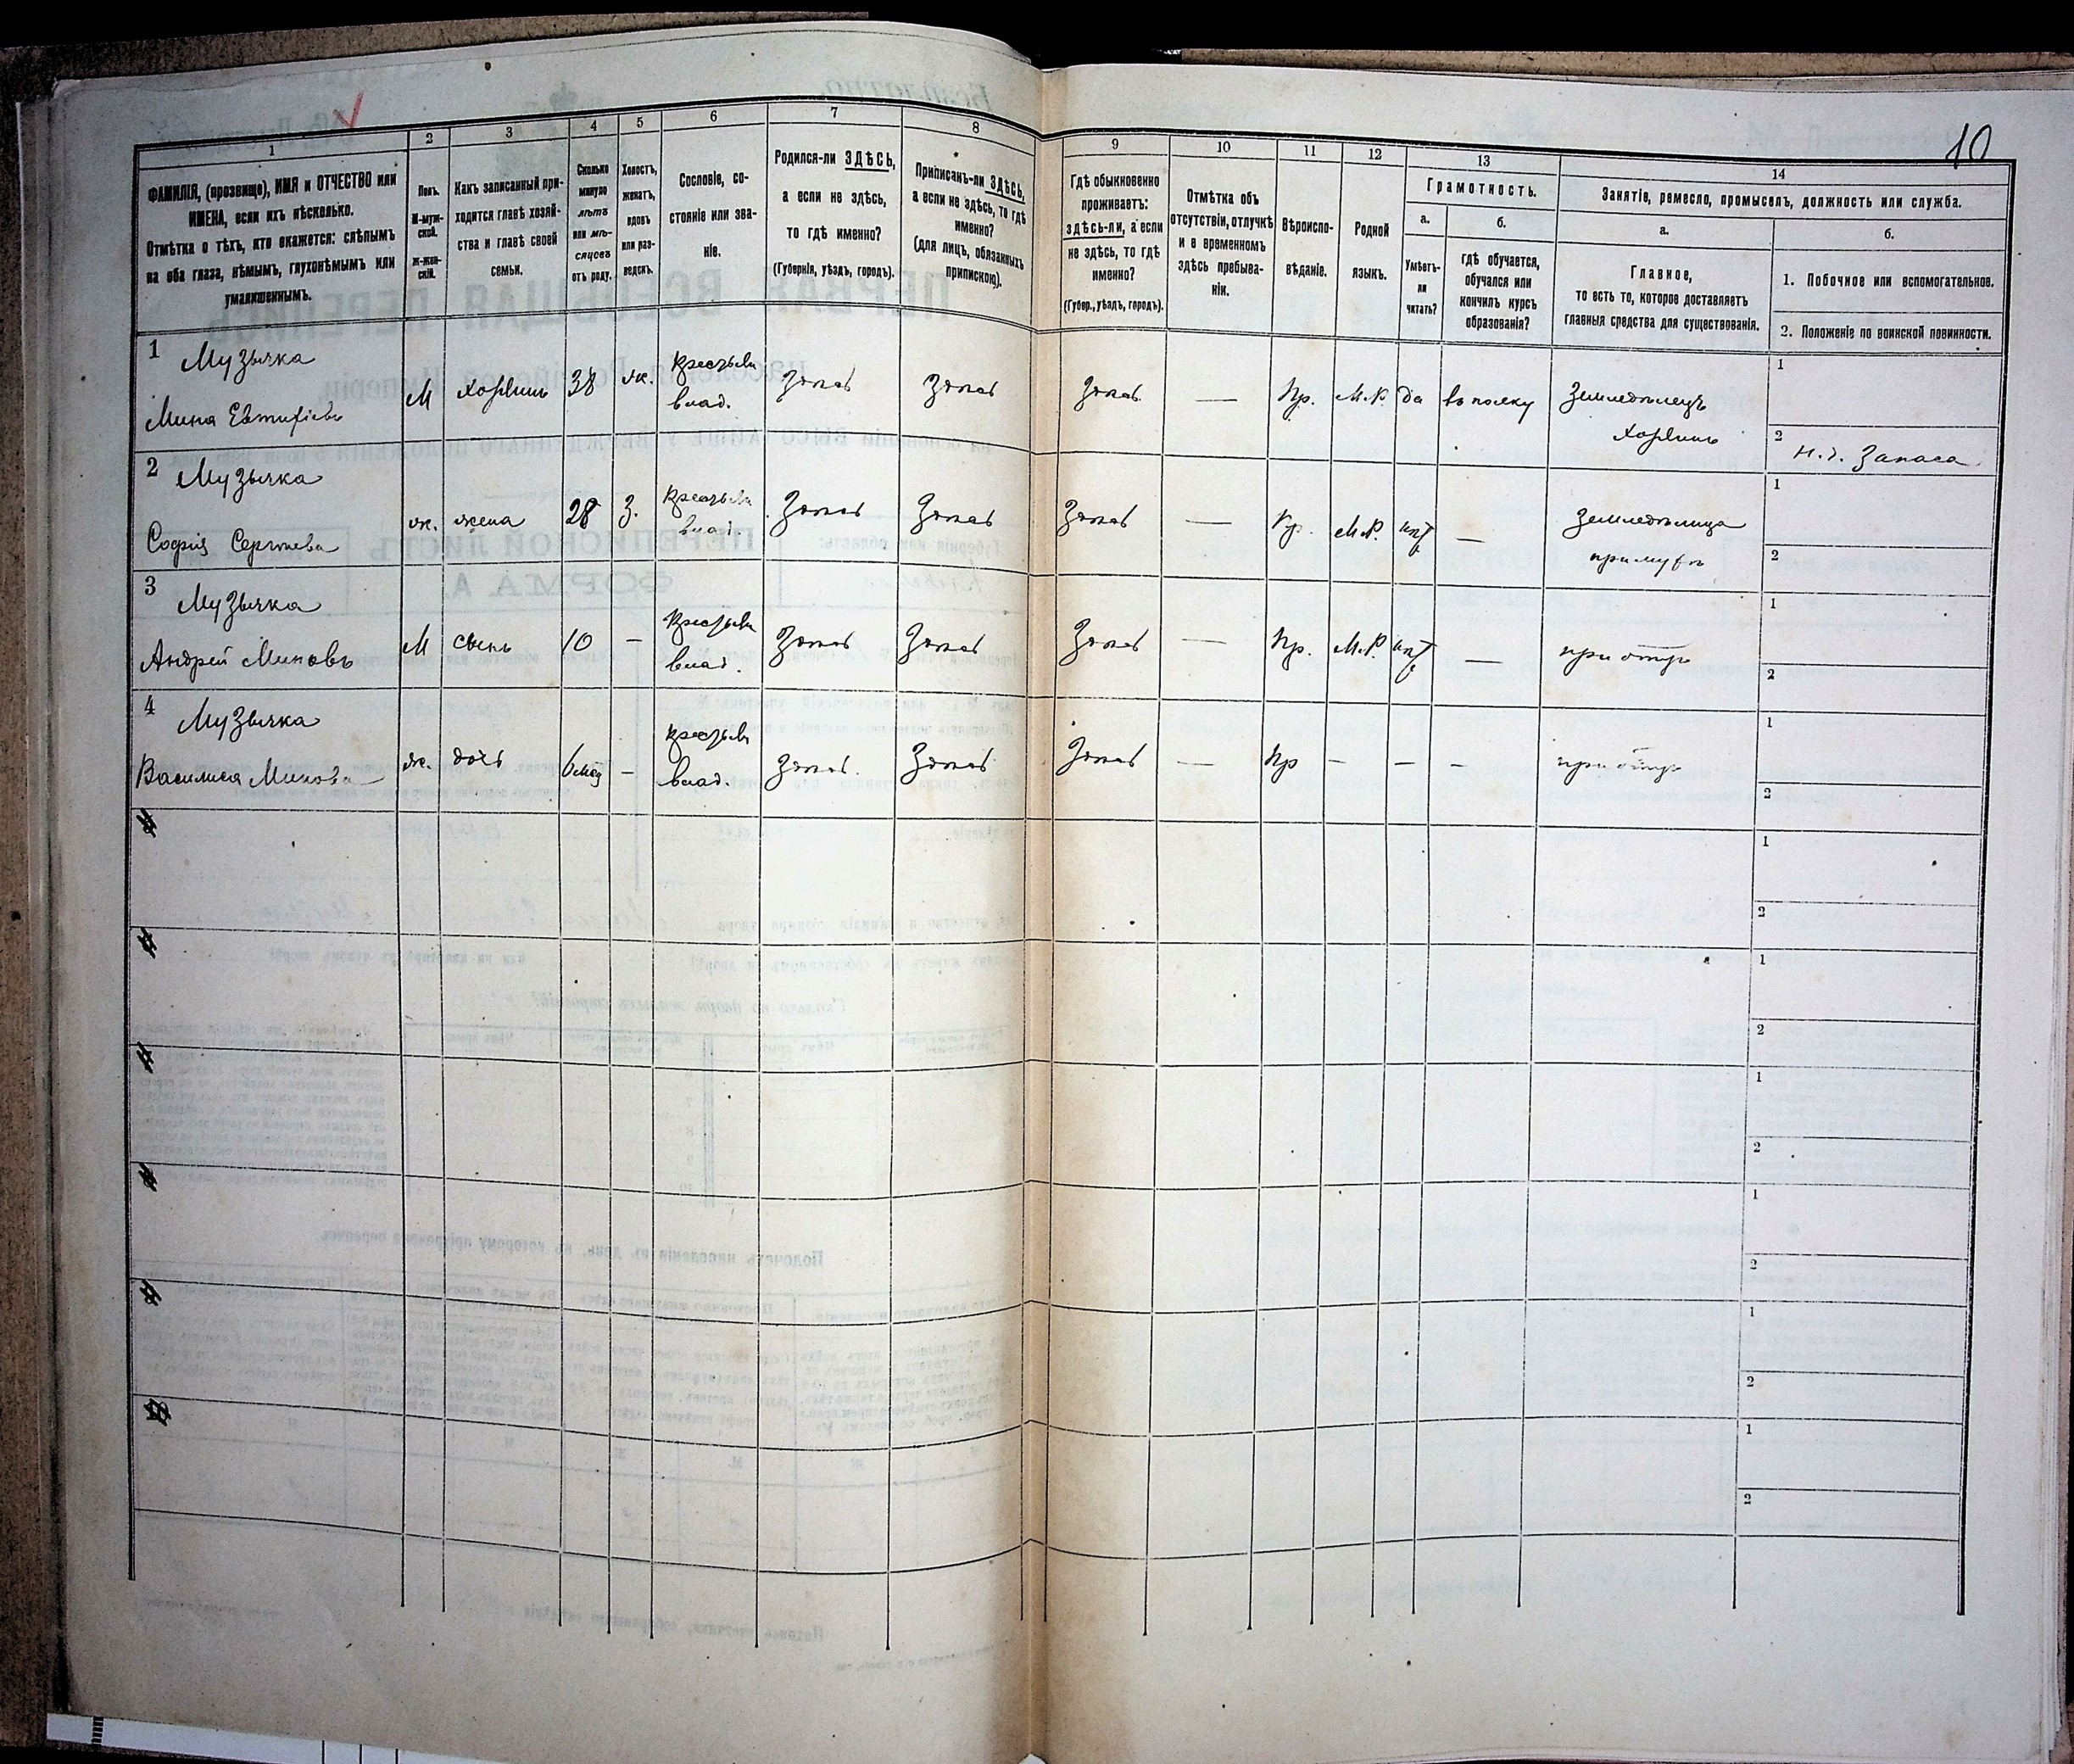 10
1
2
3
4
5
6
7
8
9
10
11
12
13
14
ФАМИЛІЯ, (прозвище), ИМЯ и ОТЧЕСТВО или
ИМЕНА, если ихъ нѣсколько.
Отмѣтка о тѣхъ, кто окажется: слѣпымъ
на оба глаза, нѣмымъ, глухонѣмымъ или
умалишеннымъ.
Полъ.
М-муж-
ской.
Ж-жен-
скій.
Какъ записанный при-
ходится главѣ хозяй-
ства и главѣ своей
семьи.
Сколько
минуло
лѣтъ
или мѣ-
сяцевъ
отъ роду.
Холостъ,
женатъ,
вдовъ
или раз-
веденъ.
Сословіе, со-
стояніе или зва-
ніе.
Родился-ли ЗДѢСЬ,
а если не здѣсь,
то гдѣ именно?
(Губернія, уѣздъ, городъ).
Приписанъ-ли ЗДѢСЬ,
а если не здѣсь, то гдѣ
именно?
(для лицъ, обязанныхъ
припискою).
Гдѣ обыкновенно
проживаетъ:
здѣсь-ли, а если
не здѣсь, то гдѣ
именно?
(Губер., уѣздъ, городъ).
Отмѣтка объ
отсутствіи, отлучкѣ
и о временномъ
здѣсь пребыва-
ніи.
Вѣроиспо-
вѣданіе.
Родной
языкъ.
Грамотность.
а.
б.
Умѣетъ-
ли
читать?
гдѣ обучается,
обучался или
кончилъ курсъ
образованія?
Занятіе, ремесло, промыселъ, должность или служба.
а.
б.
Главное,
то есть то, которое доставляетъ
главныя средства для существованія.
1. Побочное или вспомогательное.
2. Положеніе по воинской повинности.
1 Музычка
Мина Евтифіевъ
М
хозяинъ
38
ж.
крестьян
влад.
Здѣсь
Здѣсь
Здѣсь
—
Пр.
М.Р.
да
въ полку
Земледѣлецъ
хозяинъ
1
2 н. ч. Запаса
2 Музычка
Софія Сергѣева
ж.
жена
28
З.
крестьян
влад.
Здѣсь
Здѣсь
Здѣсь
—
Пр.
М.Р.
нѣт
—
Земледѣлица
при мужѣ
1
2
3 Музычка
Андрей Миновъ
М
сынъ
10
–
крестьян
влад.
Здѣсь
Здѣсь
Здѣсь
—
Пр.
М.Р.
нѣт
—
при отцѣ
1
2
4 Музычка
Василиса Минова
ж.
дочь
6 мѣц
–
крестьян
влад.
Здѣсь.
Здѣсь
Здѣсь
—
Пр
–
–
–
при отцѣ
1
2
1
2
1
2
1
2
1
2
1
2
1
2